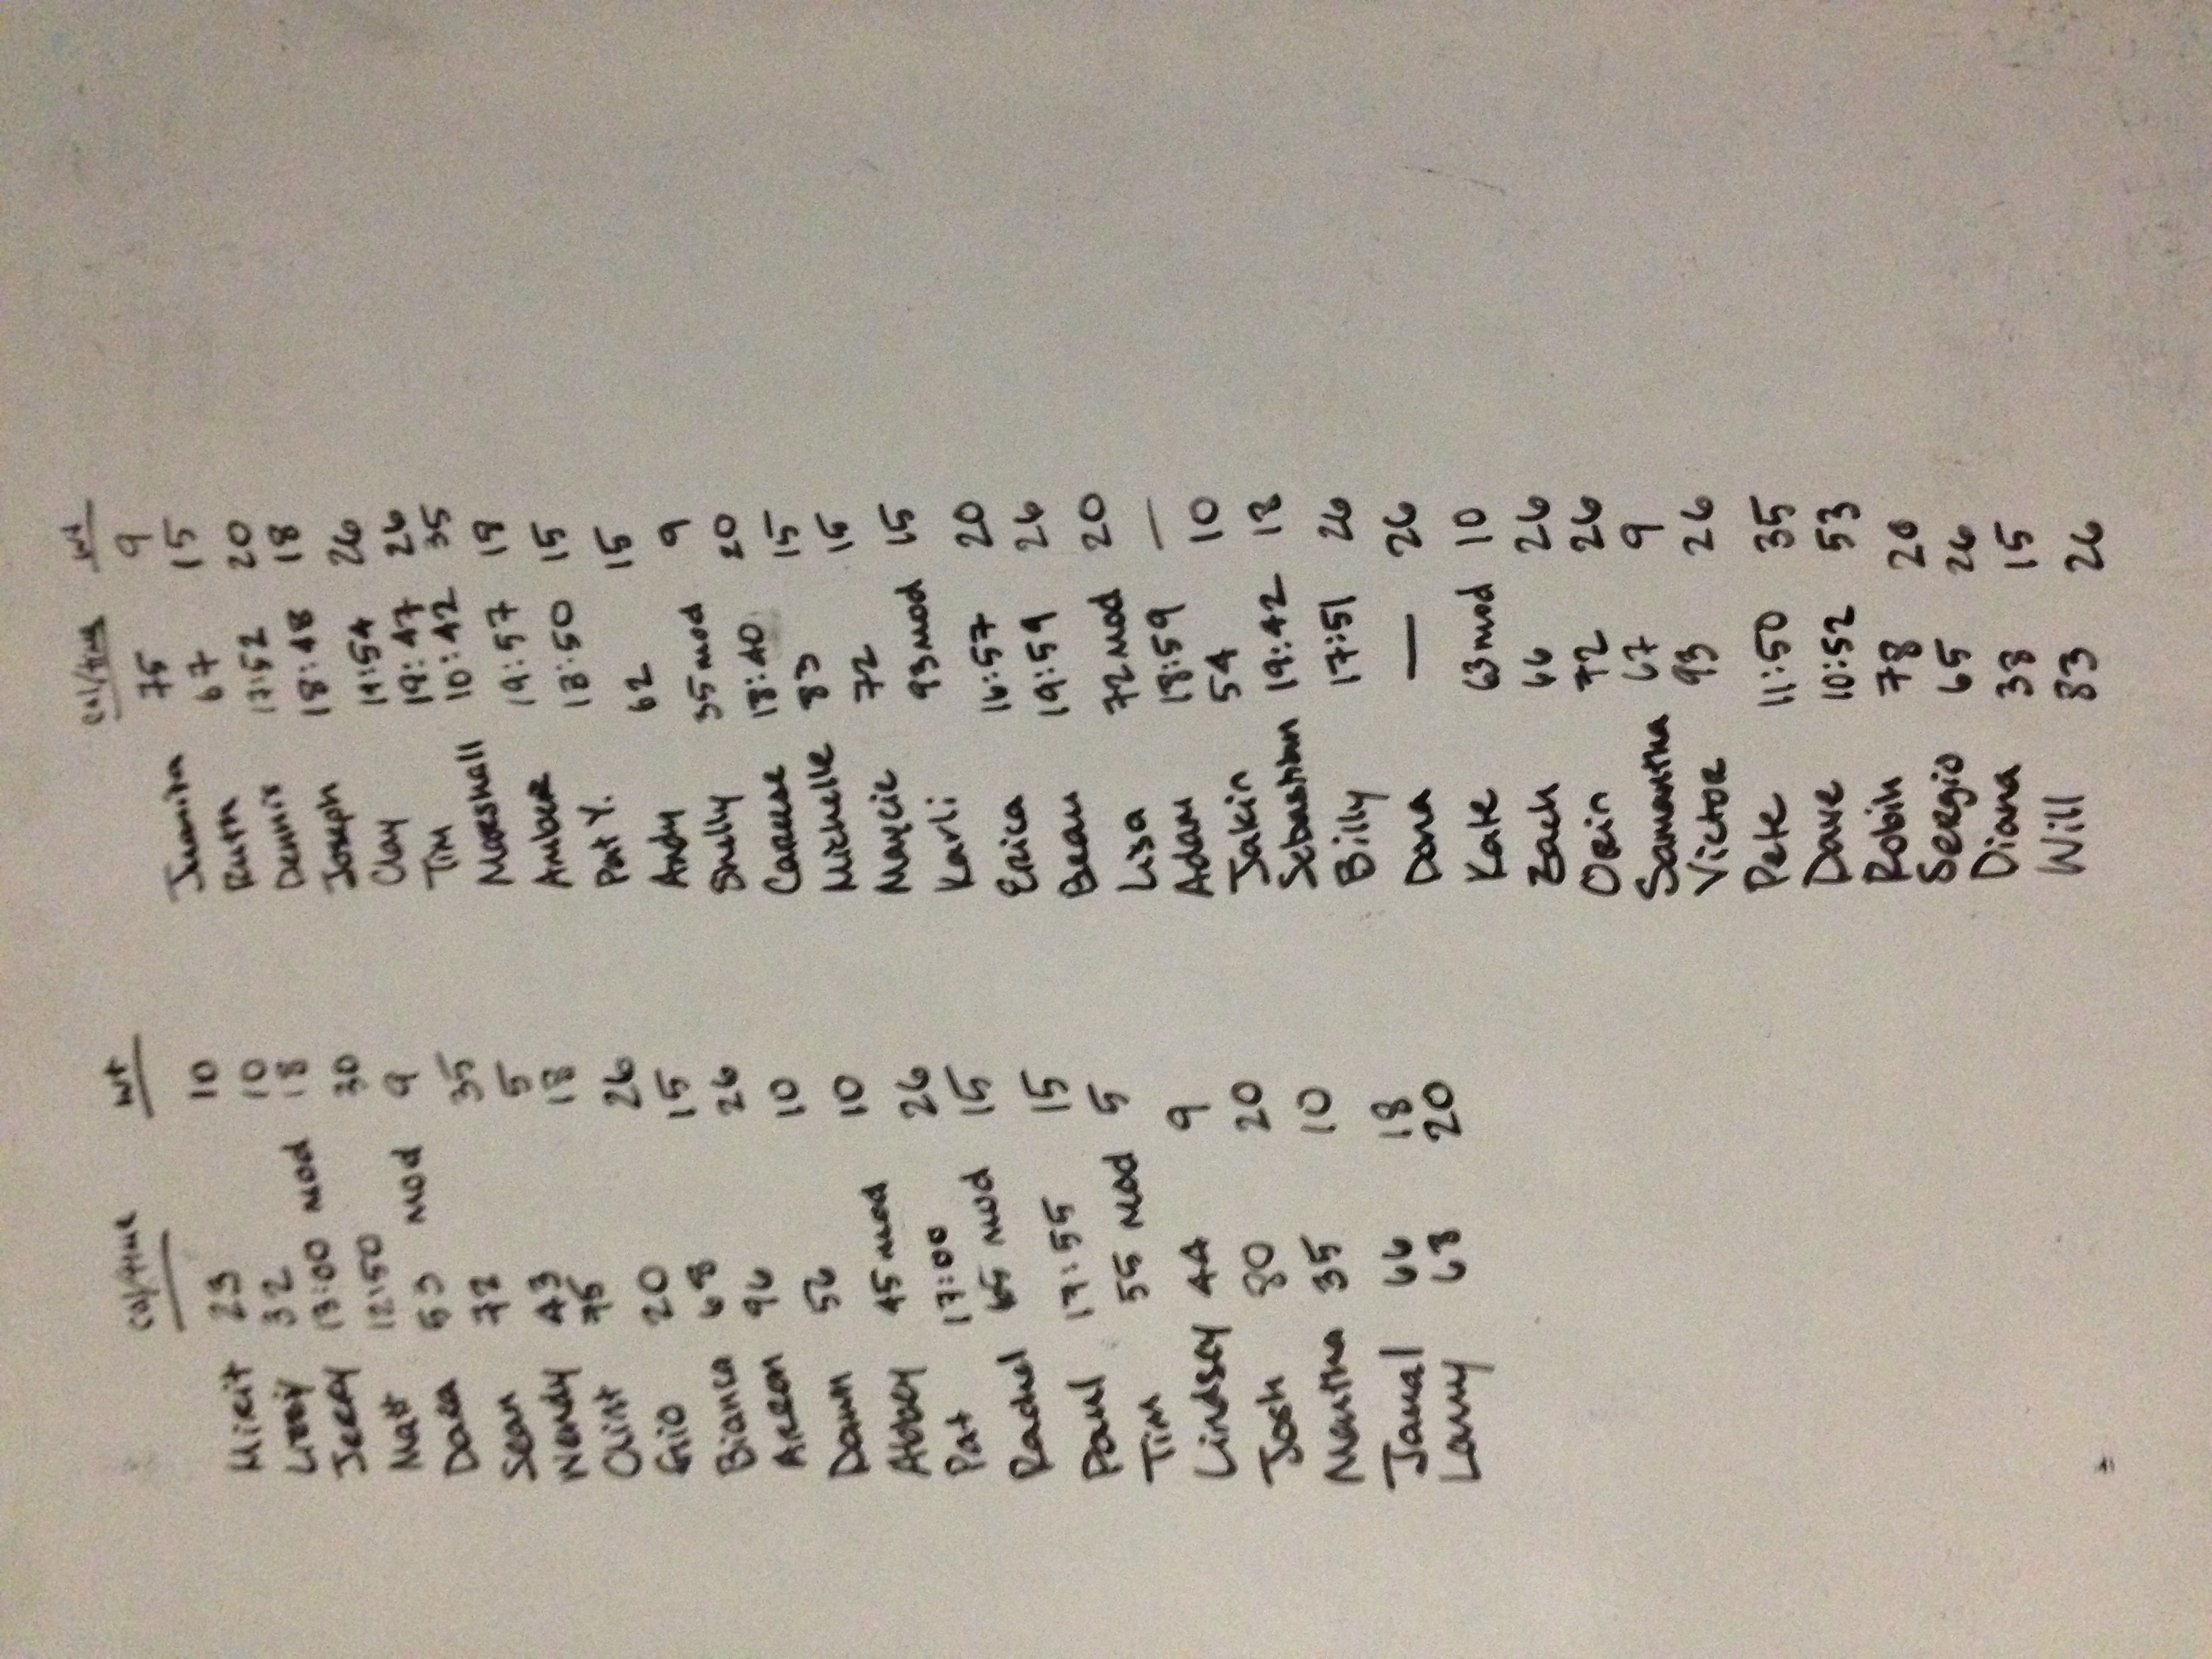 cal/time wt
23 10
Lizzy 32 10
Jerry 13:00 mod 18
Matt 12:50 30
Dara 53 mod 9
Sean 72 35
Wendy 43 5
Clint 75 18
Gio 20 26
Bianca 68 15
Arron 96 26
Dawn 56 10
Abbey 45 mod 10
Pat 17:00 26
Rachel 65 mod 15
Paul 17:55 15
Tim 55 mod 5
Lindsey 44 9
Josh 80 20
Maritha 35 10
Jamal 66 18
Lamy 63 20
cal/time wt
Juanita 75 9
Ruth 67 15
Dennis 17:52 20
Joseph 18:48 18
Clay 19:54 26
Tim 19:47 26
Marshall 10:42 35
Amber 19:57 18
Pat Y. 18:50 15
Andy 62 15
Shelly 35 mod 9
18:40 20
Michelle 83 15
Maycie 72 15
Karli 93 mod 15
Erica 16:57 20
Beau 19:59 26
Lisa 72 mod 20
Adam 18:59 —
Jakin 54 10
Sebastian 19:42 18
Billy 17:51 26
Dana — 26
Kate 63 mod 10
Zach 66 26
Orin 72 26
Samantha 67 9
Victor 93 26
Pete 11:50 35
Dave 10:52 53
Robin 78 20
Sergio 65 26
Diana 38 15
Will 83 26